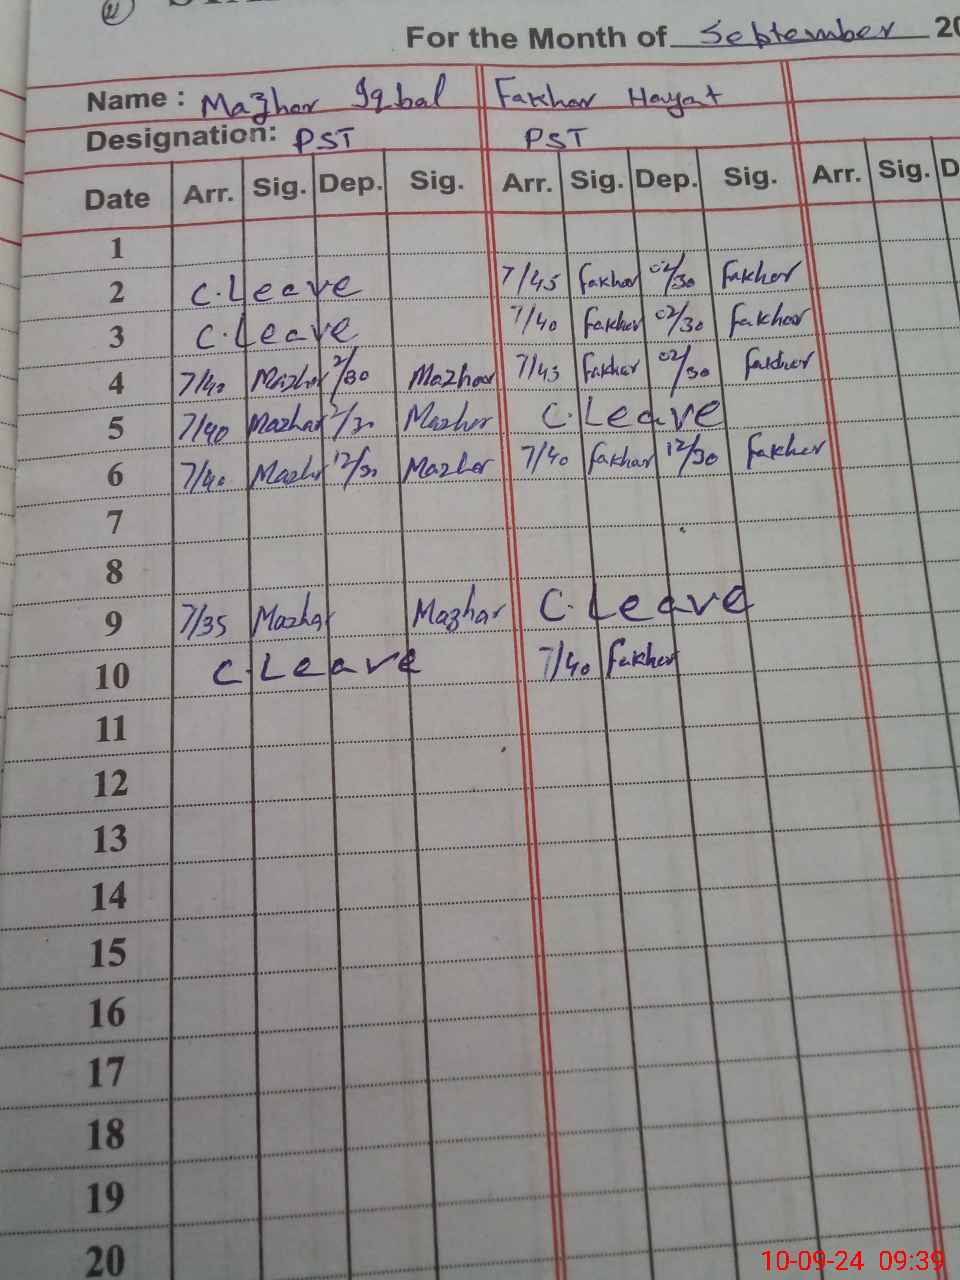 For the Month of September 20
Name : Mazhar Iqbal Fakhar Hayat
Designation: PST PST
Date Arr. Sig. Dep. Sig. Arr. Sig. Dep. Sig. Arr. Sig. D
1
2 C.Leave 7/45 Fakhar 02/30 Fakhar
3 C.Leave 7/40 Fakhar 02/30 Fakhar
4 7/40 Mazhar 2/30 Mazhar 7/45 Fakhar 02/30 Fakhar
5 7/40 Mazhar 2/30 Mazhar C.Leave
6 7/40 Mazhar 12/30 Mazhar 7/40 Fakhar 12/30 Fakhar
7
8
9 7/35 Mazhar Mazhar C.Leave
10 C.Leave 7/40 Fakhar
11
12
13
14
15
16
17
18
19
20
10-09-24 09:39